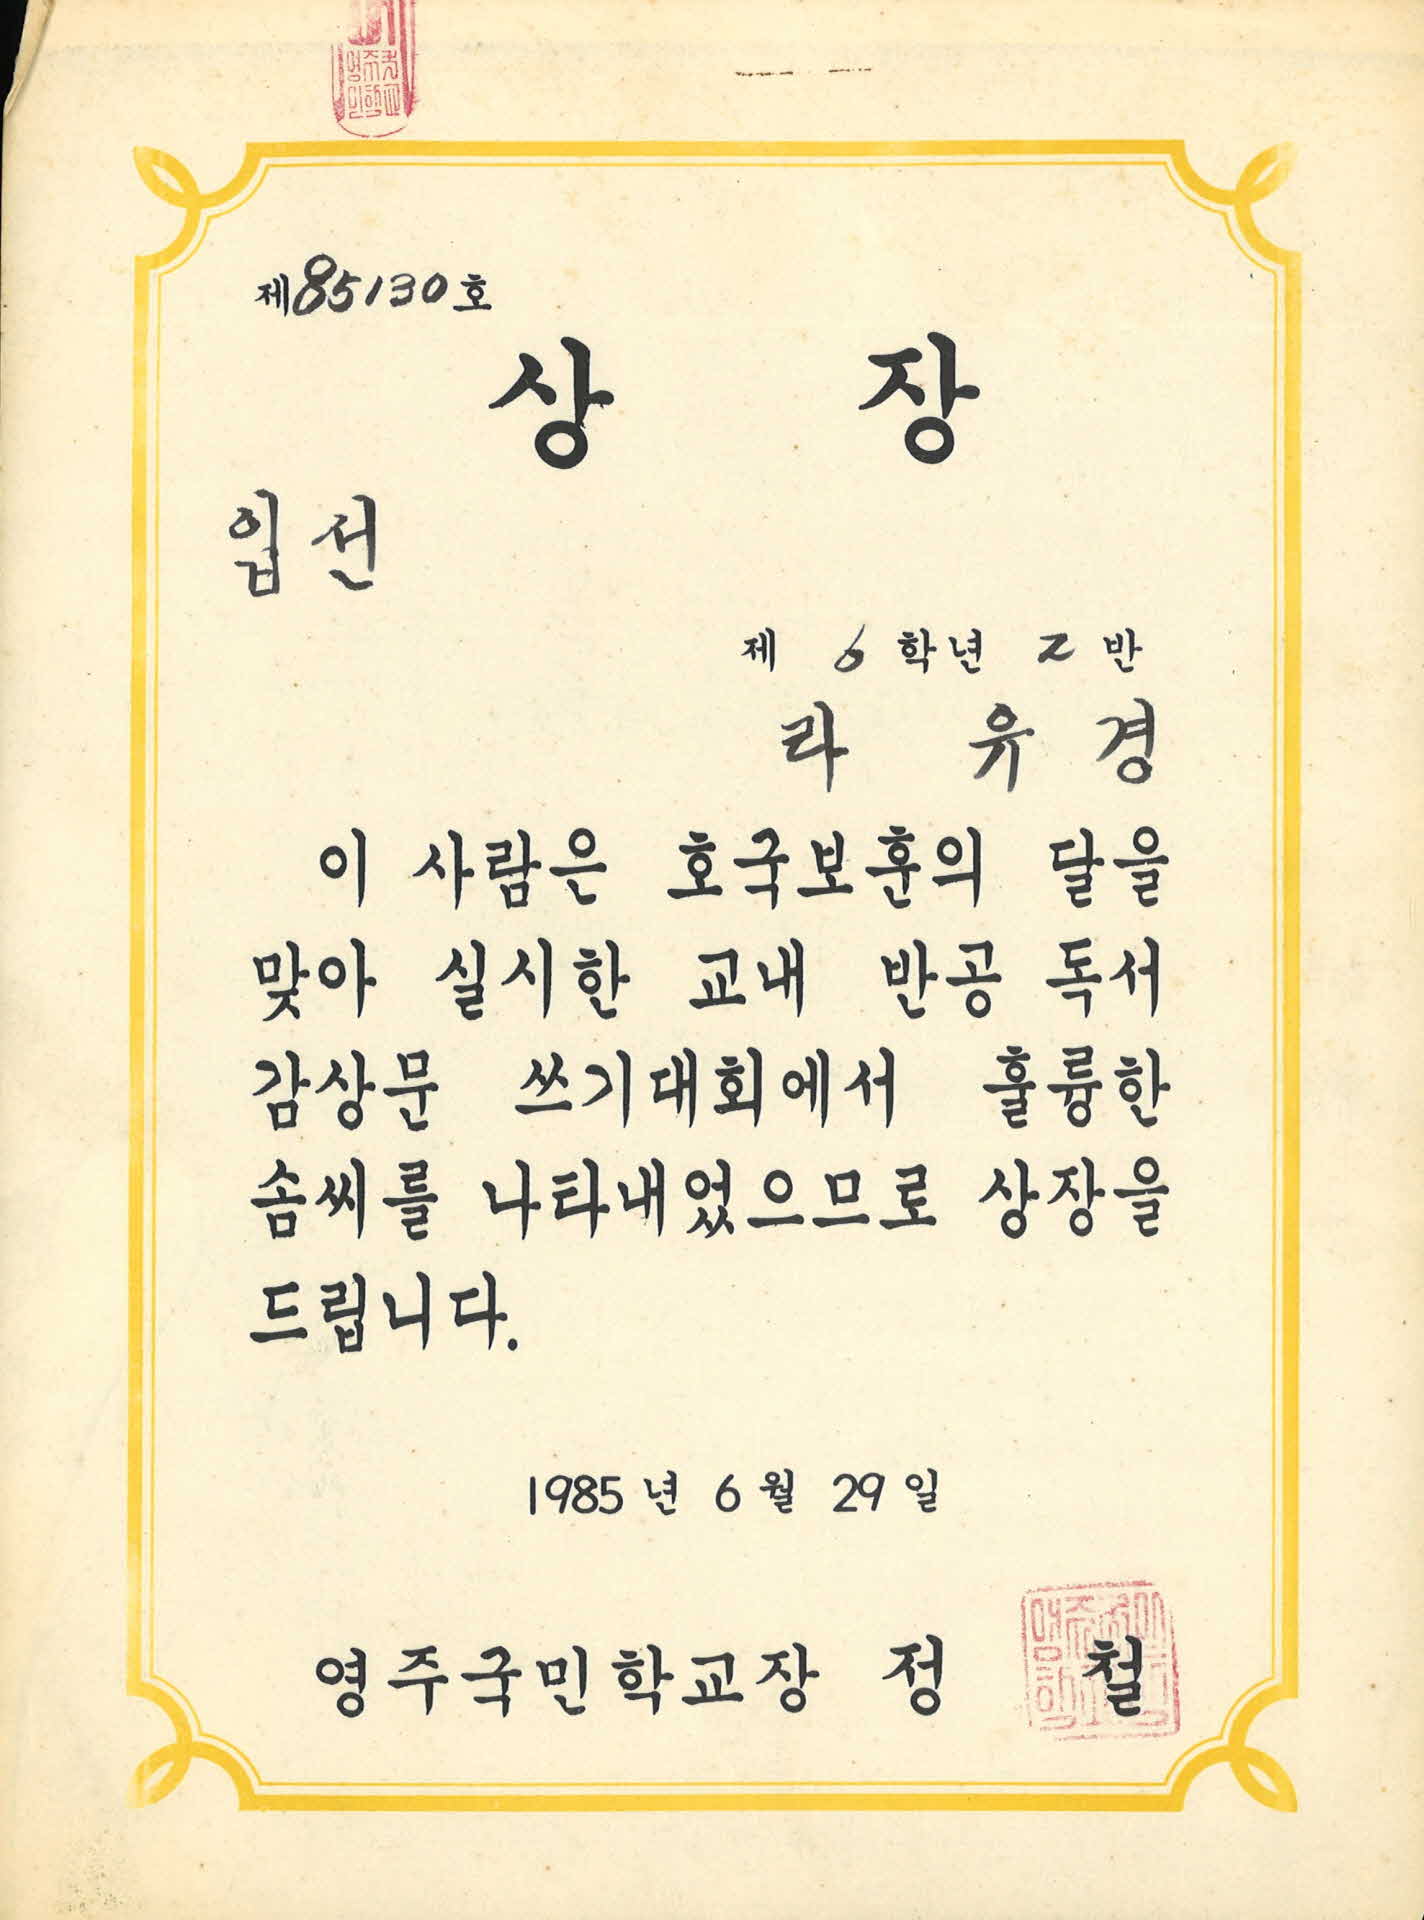 제85130호
상 장
입선
제 6 학년 2 반
라 유 경
이 사람은 호국보훈의 달을
맞아 실시한 교내 반공 독서
감상문 쓰기대회에서 훌륭한
솜씨를 나타내었으므로 상장을
드립니다.
1985 년 6 월 29 일
영주국민학교장 정 철